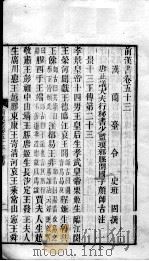 前漢書卷五十三
漢蘭臺令史班固撰
唐正議大夫行秘書少監琅邪縣開國子顏師古注
景十三王傳第二十三
孝景皇帝十四男王皇后生孝武皇帝栗姬生臨江閔
王榮河間獻王德臨江哀王閼
王餘江都易王非膠西
賈夫人生趙
敬肅王彭祖中山靖王勝唐姬生長沙定王發王夫人
生廣川惠王越膠東康王寄清河哀王乘常山憲王舜